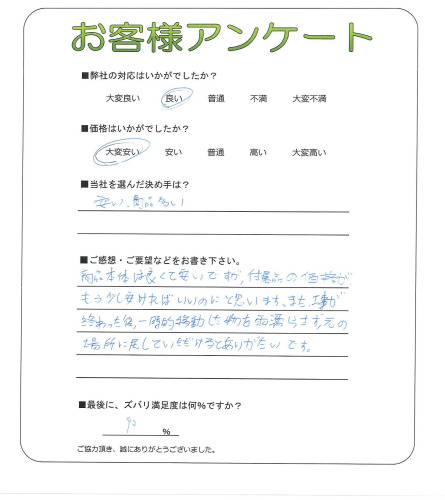 お客様アンケート
■弊社の対応はいかがでしたか？
大変良い 良い 普通 不満 大変不満
■価格はいかがでしたか？
大変安い 安い 普通 高い 大変高い
■当社を選んだ決め手は？
安い、商品多い
■ご感想・ご要望などをお書き下さい。
商品本体は良くて安いですが、付属品の価格が
もう少し安ければいいのにと思います。また、工事が
終わった後、一時的移動した物を忘れず、元の
場所に戻していただけるとありがたいです。
■最後に、ズバリ満足度は何％ですか？
90 ％
ご協力頂き、誠にありがとうございました。